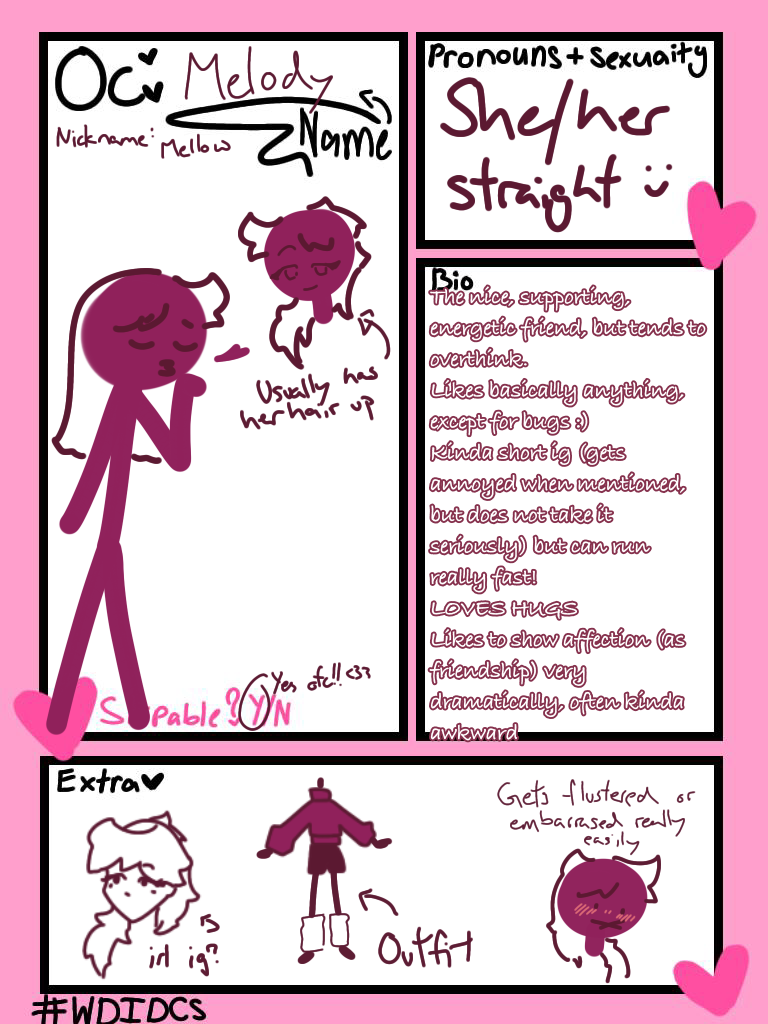 Oc Melody
Name
Nickname: Mellow
Usually has
her hair up
Shipable? Y/N
Yes ofc!! <33
Pronouns + sexuaity
She/her
straight :)
Bio
The nice, supporting,
energetic friend, but tends to
overthink.
Likes basically anything,
except for bugs :)
Kinda short ig (gets
annoyed when mentioned,
but does not take it
seriously) but can run
really fast!
LOVES HUGS
Likes to show affection (as
friendship) very
dramatically, often kinda
awkward
Extra
irl ig?
Outfit
Gets flustered or
embarrased really
easily
#WDIDCS